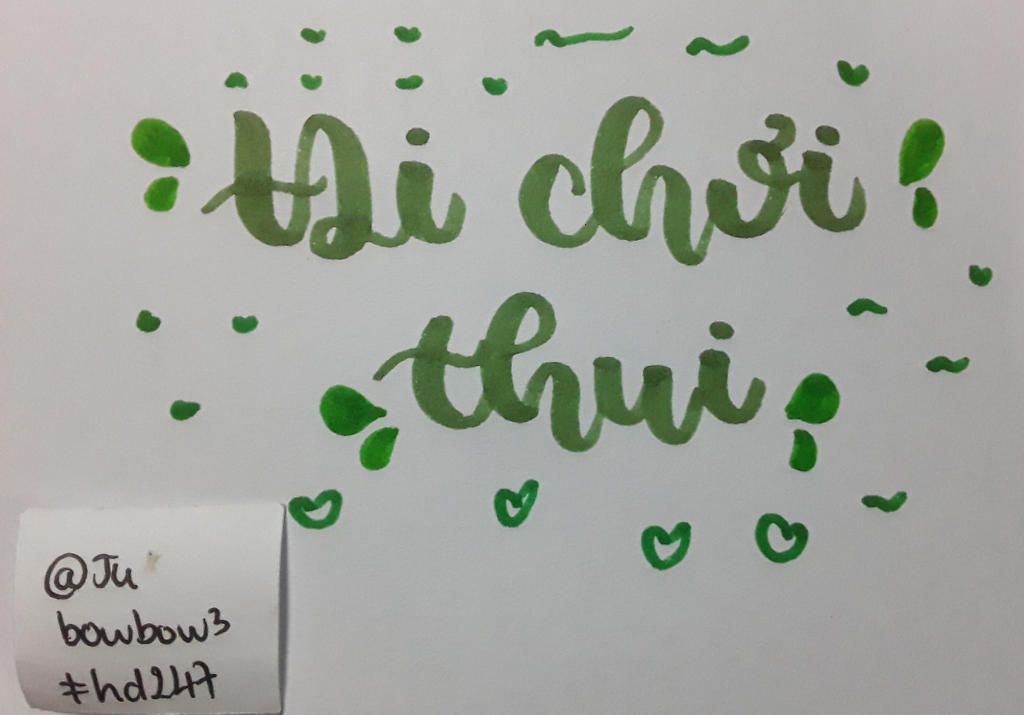 Đi chơi
thui
@Ju
bowbow3
#hd247